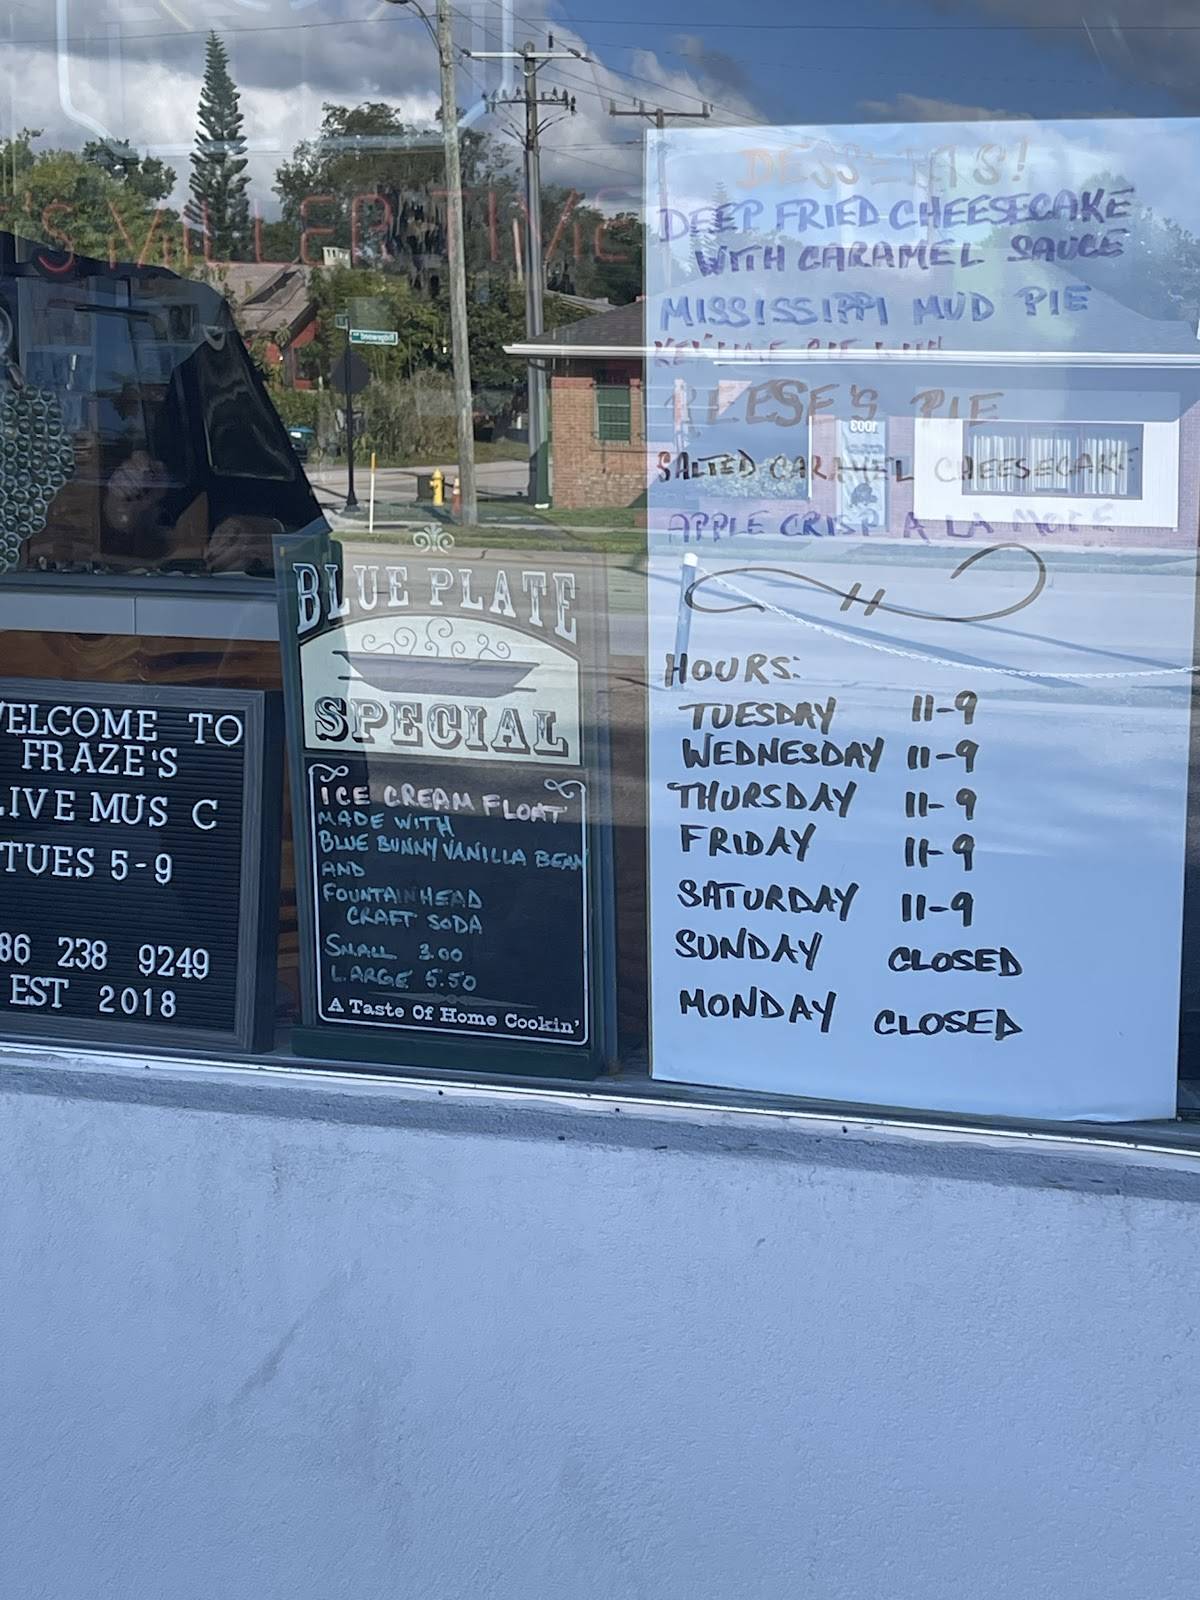 'S MILLER TIME
WELCOME TO
FRAZE'S
LIVE MUS C
TUES 5-9
86 238 9249
EST 2018
BLUE PLATE
SPECIAL
ICE CREAM FLOAT
MADE WITH
BLUE BUNNY VANILLA BEAN
AND
FOUNTAINHEAD
CRAFT SODA
SMALL 3.00
LARGE 5.50
A Taste Of Home Cookin'
DESSERTS!
DEEP FRIED CHEESECAKE
WITH CARAMEL SAUCE
MISSISSIPPI MUD PIE
KEY LIME PIE WITH
REESE'S PIE
SALTED CARAMEL CHEESECAKE
APPLE CRISP A LA MODE
HOURS:
TUESDAY 11-9
WEDNESDAY 11-9
THURSDAY 11-9
FRIDAY 11-9
SATURDAY 11-9
SUNDAY CLOSED
MONDAY CLOSED
1003